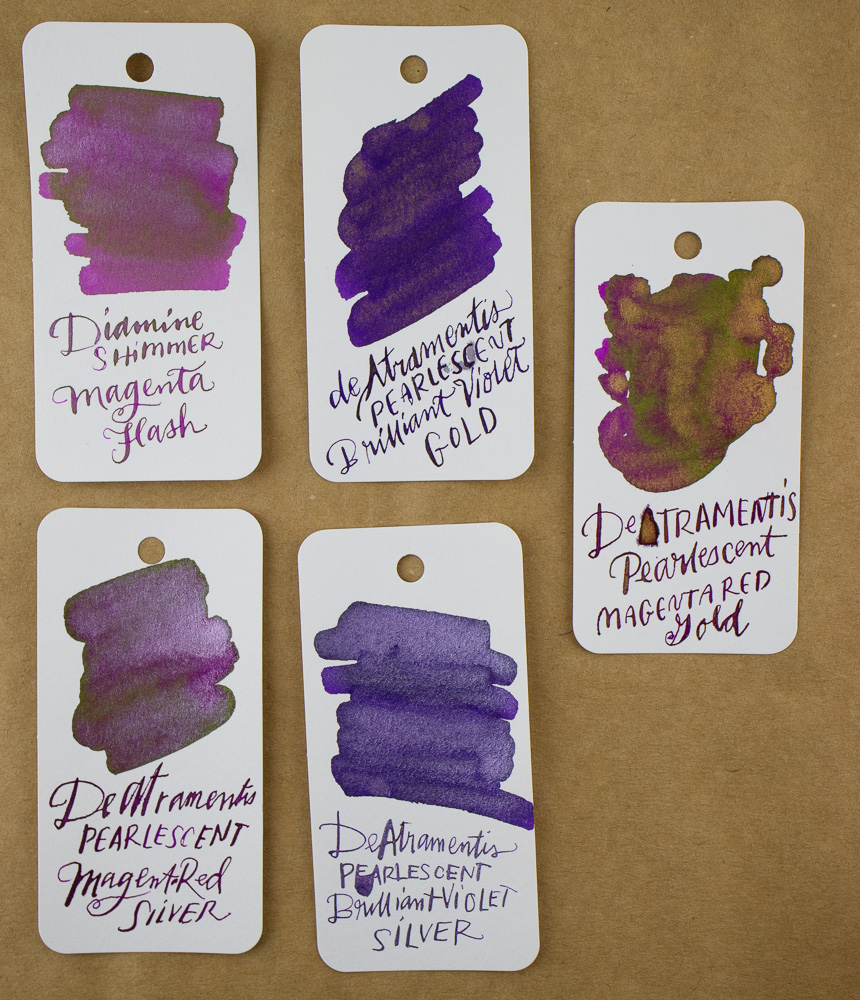 Diamine
SHIMMER
Magenta
Flash
deAtramentis
PEARLESCENT
Brilliant Violet
GOLD
DeATRAMENTIS
Pearlescent
MAGENTA RED
Gold
DeAtramentis
PEARLESCENT
Magenta-Red
SILVER
DeAtramentis
PEARLESCENT
Brilliant VIOLET
SILVER